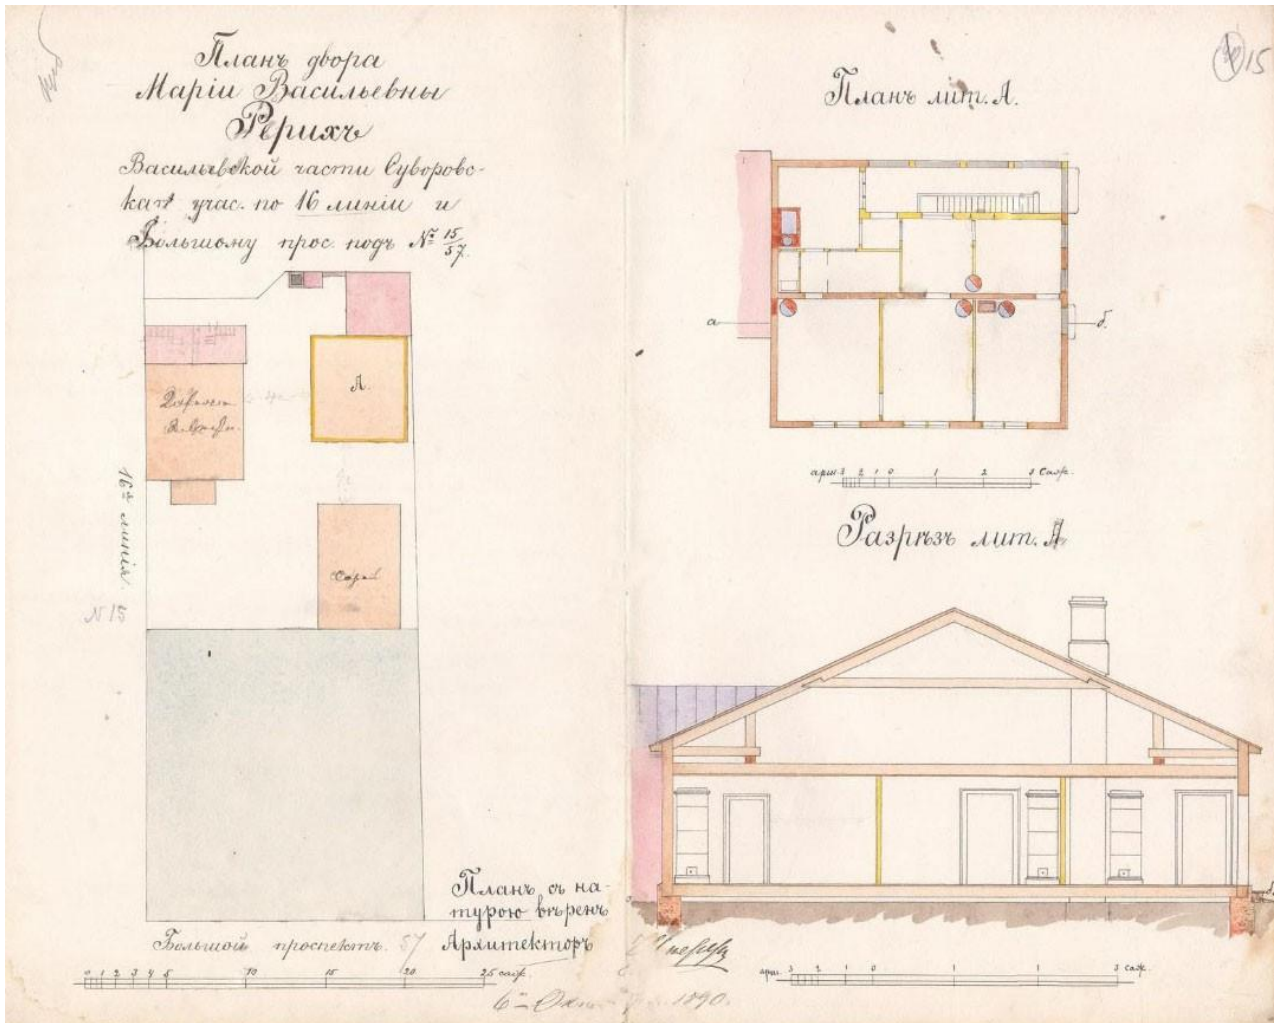 Планъ двора
Маріи Васильевны
Рерихъ
Васильевской части Суворовс-
каго учас. по 16 линіи и
Большому прос. подъ № 15/57.
А.
Сарай
16ая линія.
N 15
Большой проспектъ. 57
0 1 2 3 4 5 10 15 20 25 саж.
Планъ съ на-
турою вѣренъ
Архитекторъ
6го 1890.
15
Планъ лит. А.
а б.
арш. 3 2 1 0 1 2 3 Саж.
Разрѣзъ лит. А
арш. 3 2 1 0 1 3 саж.